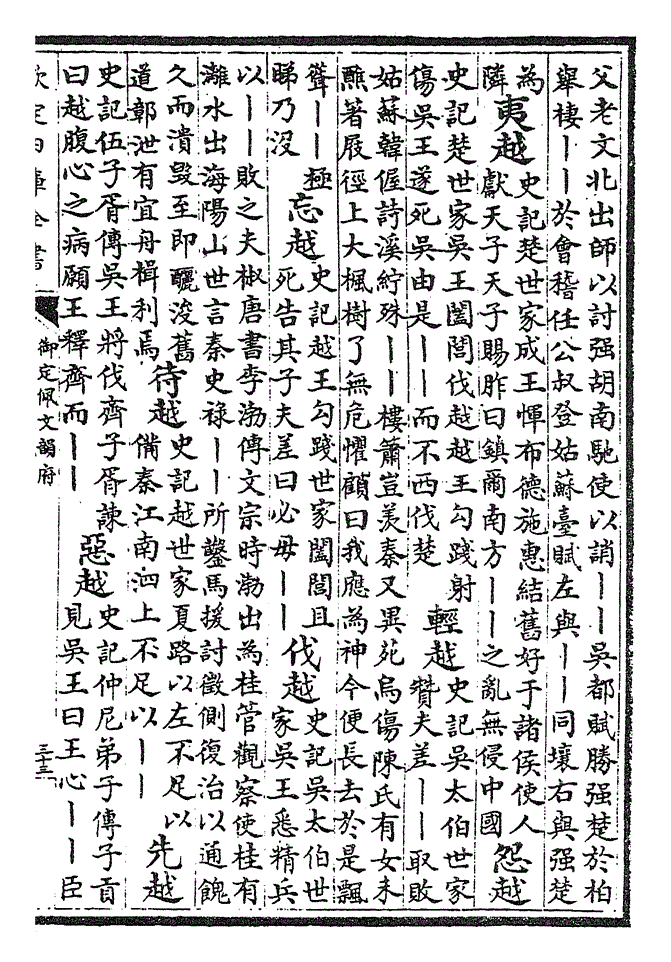 父老文北出師以討强胡南馳使以誚――吳都賦勝强楚於柏
舉棲――於會稽任公叔登姑蘇臺賦左與――同壤右與强楚
為
隣
夷越
史記楚世家成王惲布德施惠結舊好于諸侯使人
獻天子天子賜胙曰鎮爾南方――之亂無侵中國
怨越
史記楚世家吳王闔閭伐越越王勾踐射
傷吳王遂死吳由是――而不西伐楚
輕越
史記吳太伯世家
贊夫差――取敗
姑蘇韓偓詩溪紵殊――樓簫豈羨秦又異苑烏傷陳氏有女未
醮著屐徑上大楓樹了無危懼顧曰我應為神今便長去於是飄
聳――極
睇乃沒
忘越
史記越王勾踐世家闔閭且
死告其子夫差曰必毋――
伐越
史記吳太伯世
家吳王悉精兵
以――敗之夫椒唐書李渤傳文宗時渤出為桂管觀察使桂有
灕水出海陽山世言秦史祿――所鑿馬援討徵側復治以通餽
久而潰毀至即釃浚舊
道鄣泄有宜舟楫利焉
待越
史記越世家夏路以左不足以
備秦江南泗上不足以――
先越
史記伍子胥傳吳王將伐齊子胥諫
曰越腹心之病願王釋齊而――
惡越
史記仲尼弟子傳子貢
見吳王曰王心――臣
欽定四庫全書
御定佩文韻府
三十三